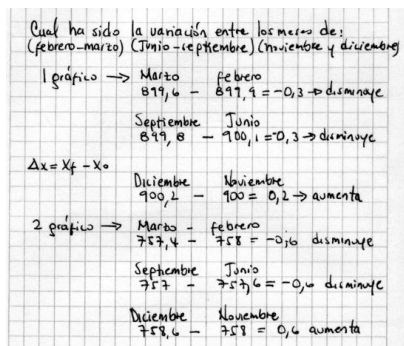 Cual ha sido la variación entre los meses de:
(febrero-marzo) (Junio-septiembre) (noviembre y diciembre)
1 gráfico → Marzo febrero
899,6 - 899,9 = -0,3 → disminuye
Septiembre Junio
899,8 - 900,1 = -0,3 → disminuye
Δx = Xf - X₀
Diciembre Noviembre
900,2 - 900 = 0,2 → aumenta
2 gráfico → Marzo - febrero
757,4 - 758 = -0,6 disminuye
Septiembre Junio
757 - 757,6 = -0,6 disminuye
Diciembre Noviembre
758,6 - 758 = 0,6 aumenta